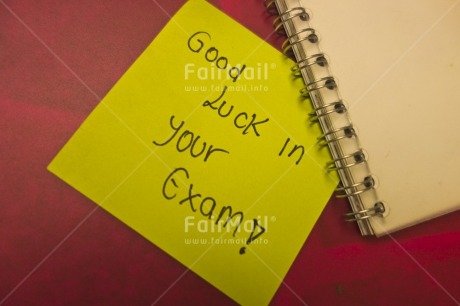 Good
Luck in
your
Exam!
FairMail
www.fairmail.info
FairMail
www.fairmail.info